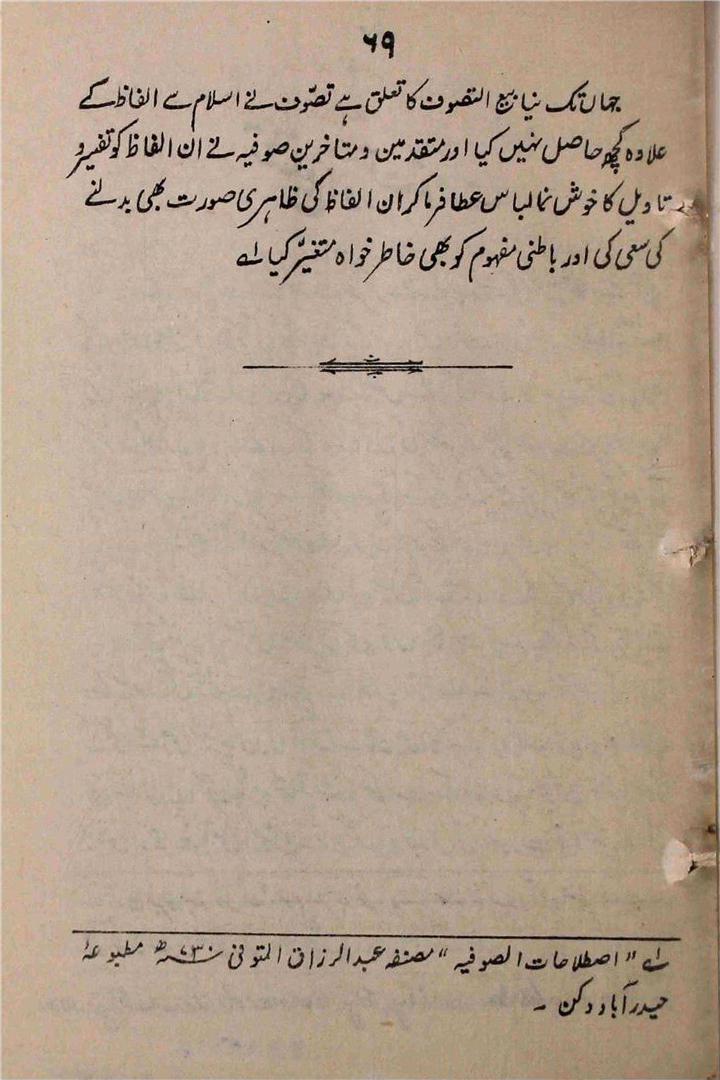 ۶۹
جہاں تک ینابیع التصوف کا تعلق ہے تصوّف نے اسلام سے الفاظ کے
علاوہ کچھ حاصل نہیں کیا اور متقدمین و متاخرین صوفیہ نے ان الفاظ کو تفسیر و
تاویل کا خوش نما لباس عطا فرما کر ان الفاظ کی ظاہری صورت بھی بدلنے
کی سعی کی اور باطنی مفہوم کو بھی خاطر خواہ متغیّر کیا ۱؎
۱؎ "اصطلاحات الصوفیہ" مصنفہ عبدالرزاق المتوفی ۷۳۰ھ مطبوعۂ
حیدرآباد دکن ۔